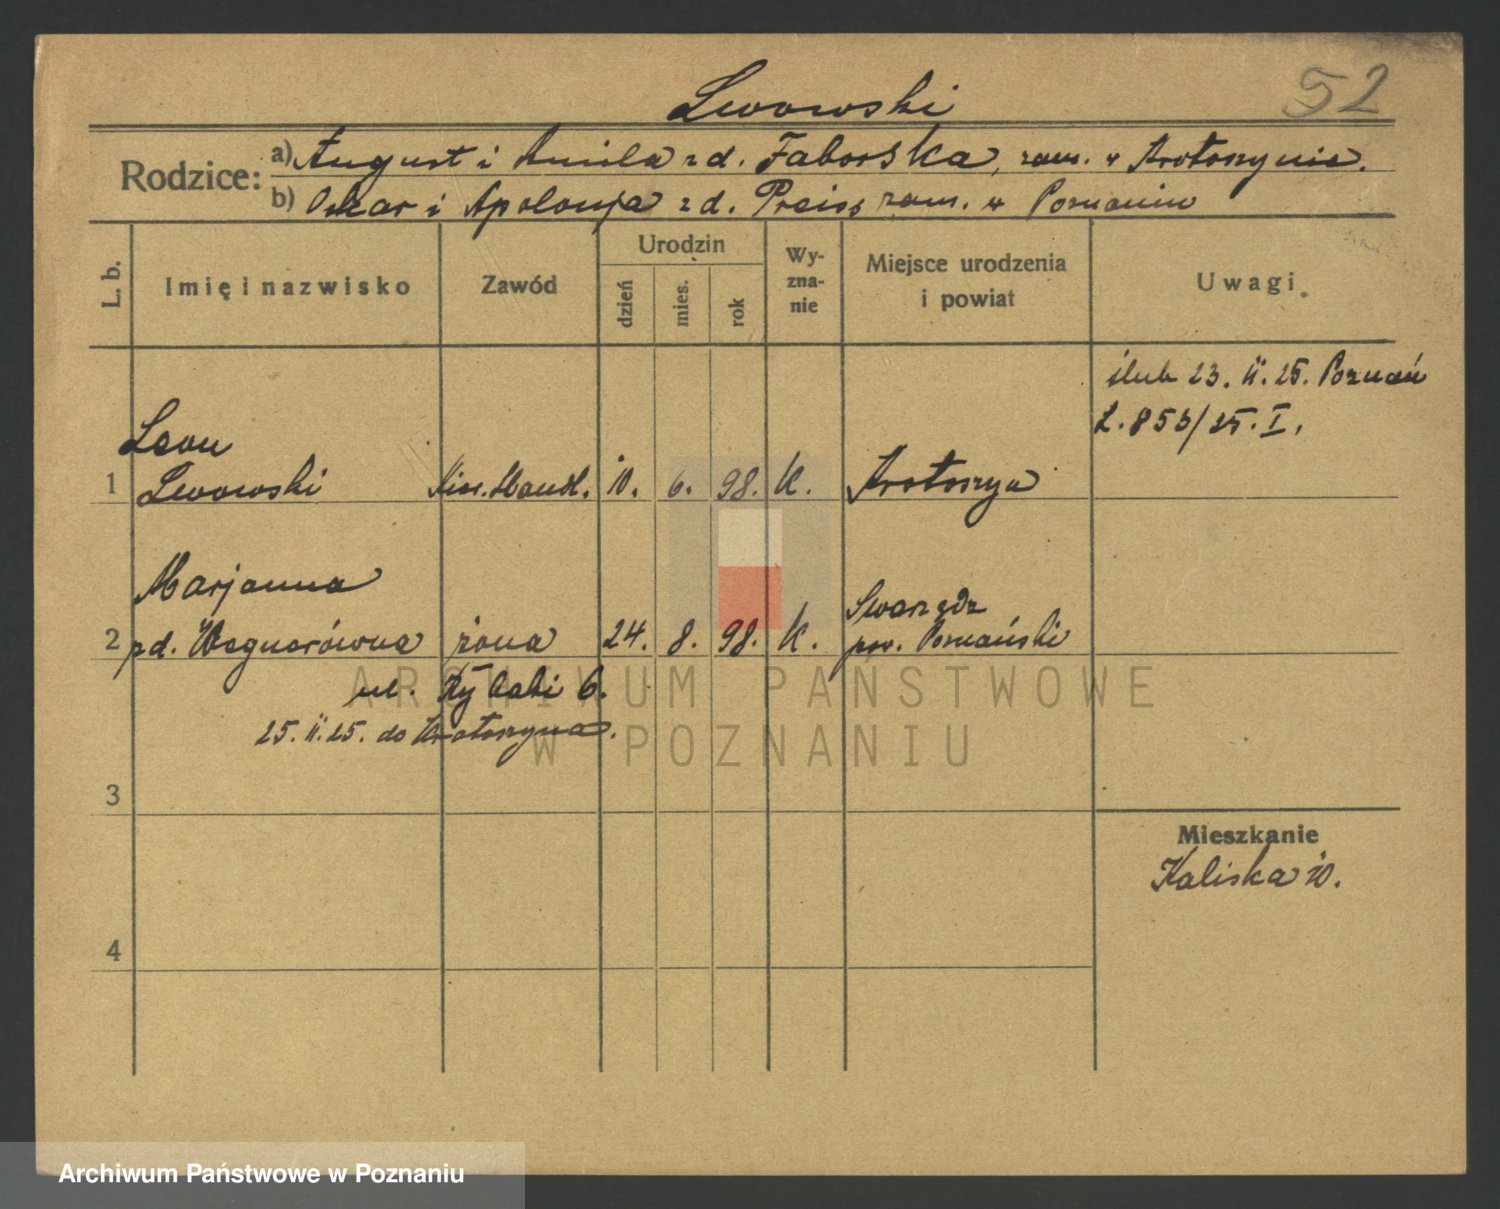 Lwowski
52
Rodzice: a) August i Amila z d. Faborska, zam. w Krotoszynie.
b) Oskar i Apolonja z d. Preiss zam. w Poznaniu
L. b. Imię i nazwisko Zawód Urodzin dzień mies. rok Wyznanie Miejsce urodzenia i powiat Uwagi
ślub 23. II. 25. Poznań
L. 853/25. I.
Leon
1 Lwowski Kier. Handl. 10. 6. 98. K. Krotoszyn
Marjanna Swarzędz
2 zd. Wagnerówna żona 24. 8. 98. K. pow. Poznański
ul. Rybaki 6.
25. II. 25. do Krotoszyna.
3
Mieszkanie
Kaliska 10.
4
ARCHIWUM PAŃSTWOWE
W POZNANIU
Archiwum Państwowe w Poznaniu